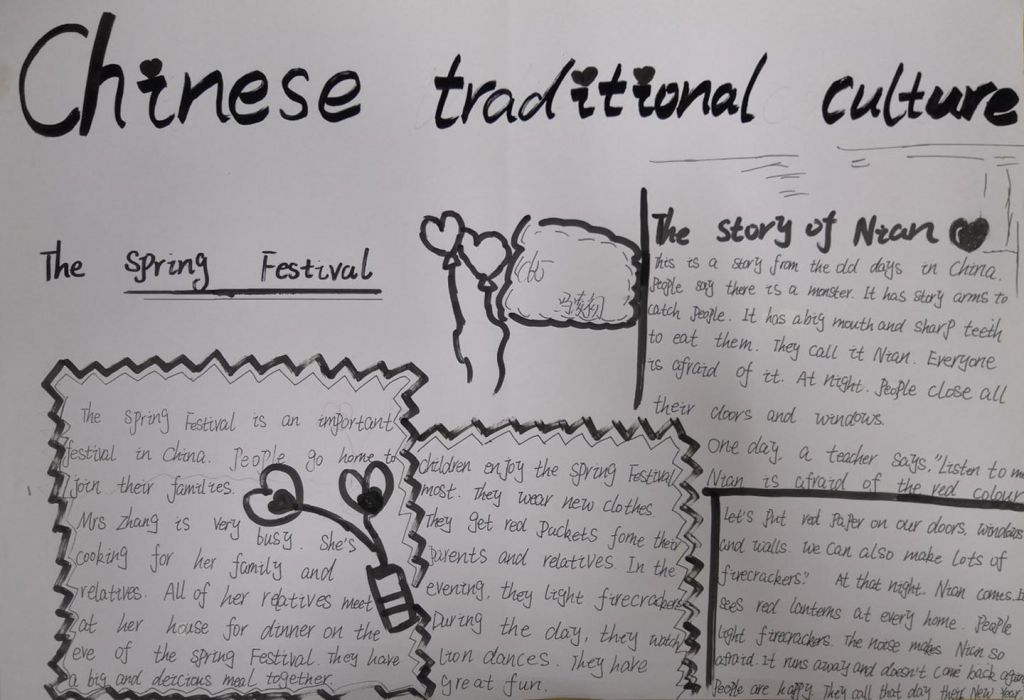 Chinese traditional culture
The Spring Festival
The Spring Festival is an important
festival in China. People go home to
join their families.
Mrs Zhang is very busy. She's
cooking for her family and
relatives. All of her relatives meet
at her house for dinner on the
eve of the Spring Festival. They have
a big and deicious meal together.
children enjoy the Spring Festival
most. They wear new clothes.
They get red Packets fome their
parents and relatives. In the
evening, they light firecrackers
During the day, they watch
lion dances. They have
great fun.
The story of Nian
This is a story from the old days in China.
People say there is a monster. It has story arms to
catch People. It has a big mouth and sharp teeth
to eat them. They call it Nian. Everyone
is afraid of it. At night. People close all
their doors and windows.
One day, a teacher says, "Listen to m
Nian is afraid of the red colour
Let's Put red Paper on our doors, windows
and walls. We can also make lots of
firecrackers." At that night. Nian comes. It
sees red lanterns at every home. People
light firecrackers. The noise makes Nian so
afraid. It runs away and doesn't come back after
People are happy. They call that day their New Year